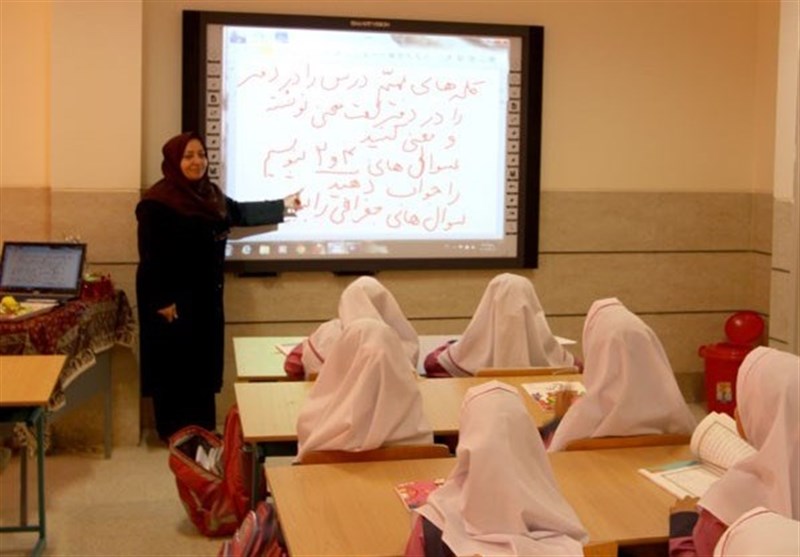 SMART VISION
کلمه های مهمّ درس را در دفتر
را در دفتر لغت معنی نوشته
و معنی کنید
سوال های ۲ و ۳
را جواب دهید
سوال های جغرافی را